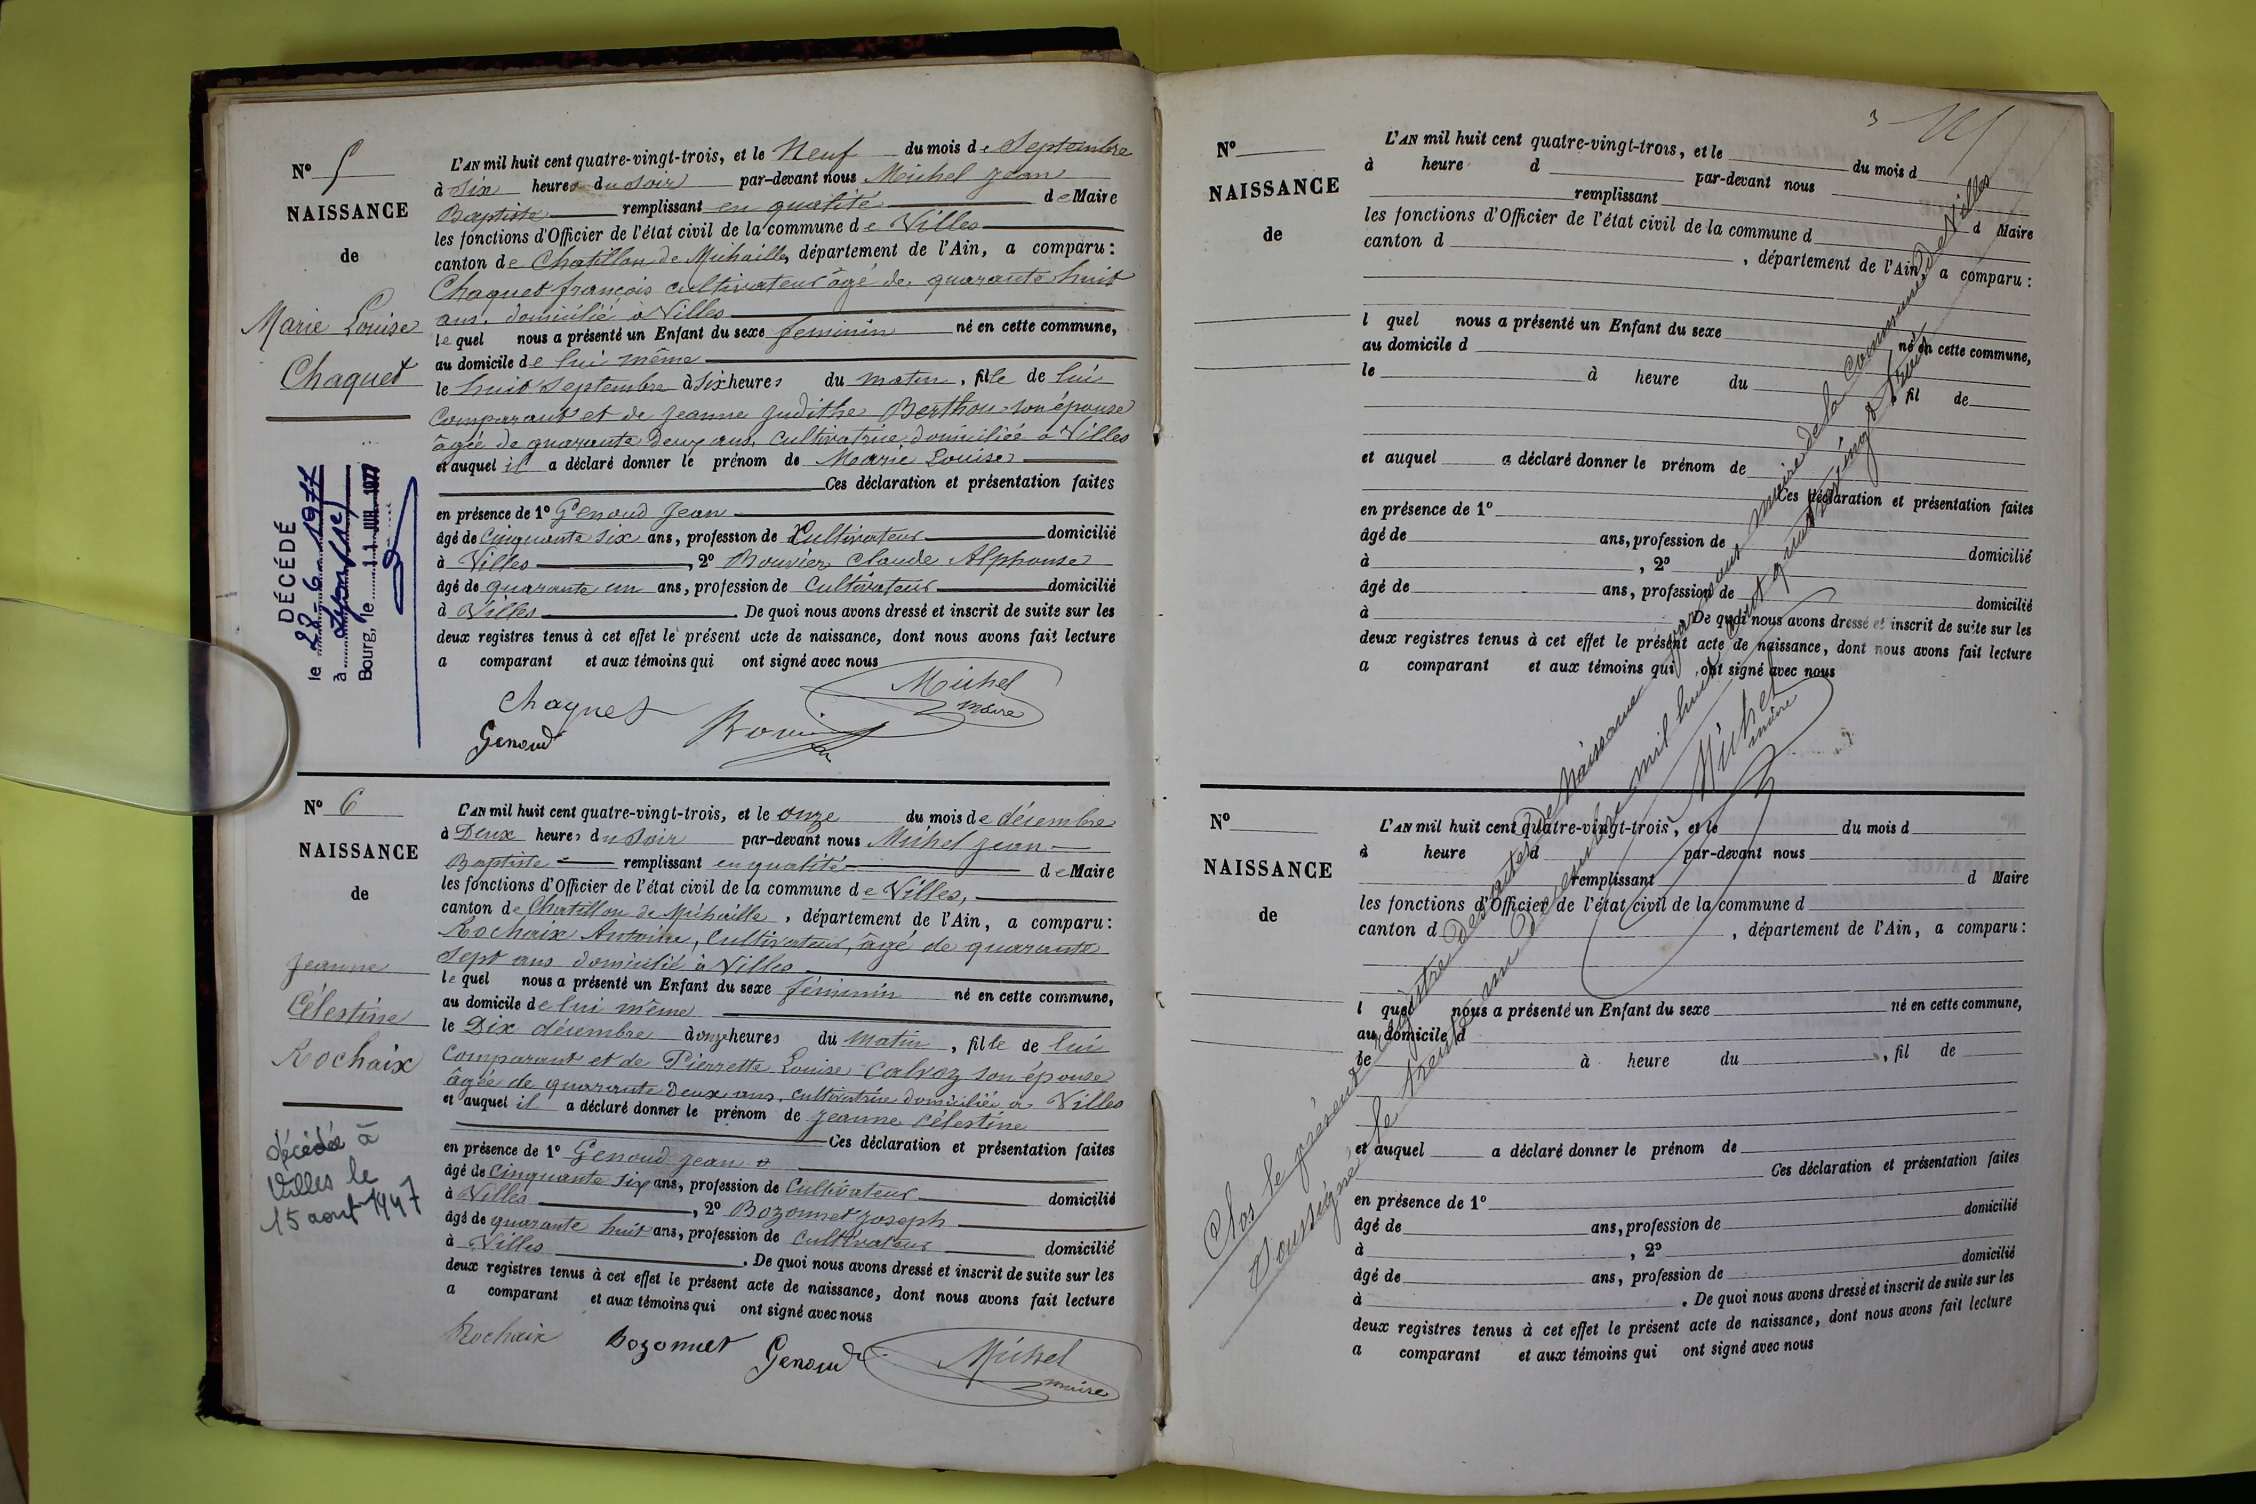 N° 5
NAISSANCE
de
Marie Louise
Chaquet
DÉCÉDÉ
le 28-6-1977
à
Bourg, le 11 JUIL. 1977
L'AN mil huit cent quatre-vingt-trois, et le Neuf du mois de Septembre
à Six heures du Soir par-devant nous Michel Jean
Baptiste remplissant en qualité de Maire
les fonctions d'Officier de l'état civil de la commune de Villes
canton de Chatillon de Michaille, département de l'Ain, a comparu :
Chaquet françois cultivateur âgé de quarante huit
ans, domicilié à Villes
lequel nous a présenté un Enfant du sexe feminin né en cette commune,
au domicile de lui même
le huit Septembre à six heures du matin, fille de lui
Comparant et de Jeanne Judithe Berthou son épouse
âgée de quarante deux ans, cultivatrice domiciliée à Villes
et auquel il a déclaré donner le prénom de Marie Louise
Ces déclaration et présentation faites
en présence de 1° Genoud Jean
âgé de Cinquante six ans, profession de Cultivateur domicilié
à Villes, 2° Bouvier Claude Alphonse
âgé de quarante un ans, profession de Cultivateur domicilié
à Villes. De quoi nous avons dressé et inscrit de suite sur les
deux registres tenus à cet effet le présent acte de naissance, dont nous avons fait lecture
a comparant et aux témoins qui ont signé avec nous
Chaquet
Michel
maire
Genoud
N° 6
NAISSANCE
de
Jeanne
Célestine
Rochaix
décédée à
Villes le
15 aout 1947
L'AN mil huit cent quatre-vingt-trois, et le onze du mois de décembre
à Deux heures du Soir par-devant nous Michel Jean
Baptiste remplissant en qualité de Maire
les fonctions d'Officier de l'état civil de la commune de Villes,
canton de Chatillon de Michaille, département de l'Ain, a comparu :
Rochaix Antoine, Cultivateur, âgé de quarante
Sept ans domicilié à Villes
lequel nous a présenté un Enfant du sexe féminin né en cette commune,
au domicile de lui même
le Dix décembre à onze heures du Matin, fille de lui
Comparant et de Pierrette Louise Calvoz son épouse
âgée de quarante Deux ans, cultivatrice domiciliée à Villes
et auquel il a déclaré donner le prénom de Jeanne Célestine
Ces déclaration et présentation faites
en présence de 1° Genoud Jean
âgé de Cinquante six ans, profession de Cultivateur domicilié
à Villes, 2° Bozonnet Joseph
âgé de quarante huit ans, profession de Cultivateur domicilié
à Villes. De quoi nous avons dressé et inscrit de suite sur les
deux registres tenus à cet effet le présent acte de naissance, dont nous avons fait lecture
a comparant et aux témoins qui ont signé avec nous
Rochaix Bozonnet Genoud Michel
maire
3
N°
NAISSANCE
de
L'AN mil huit cent quatre-vingt-trois, et le du mois d
à heure d par-devant nous
remplissant d Maire
les fonctions d'Officier de l'état civil de la commune d
canton d , département de l'Ain, a comparu :
l quel nous a présenté un Enfant du sexe né en cette commune,
au domicile d
le à heure du , fil de
et auquel a déclaré donner le prénom de
Ces déclaration et présentation faites
en présence de 1°
âgé de ans, profession de domicilié
à , 2°
âgé de ans, profession de domicilié
à . De quoi nous avons dressé et inscrit de suite sur les
deux registres tenus à cet effet le présent acte de naissance, dont nous avons fait lecture
a comparant et aux témoins qui ont signé avec nous
N°
NAISSANCE
de
L'AN mil huit cent quatre-vingt-trois, et le du mois d
à heure d par-devant nous
remplissant d Maire
les fonctions d'Officier de l'état civil de la commune d
canton d , département de l'Ain, a comparu :
l quel nous a présenté un Enfant du sexe né en cette commune,
au domicile d
le à heure du , fil de
et auquel a déclaré donner le prénom de
Ces déclaration et présentation faites
en présence de 1°
âgé de ans, profession de domicilié
à , 2°
âgé de ans, profession de domicilié
à . De quoi nous avons dressé et inscrit de suite sur les
deux registres tenus à cet effet le présent acte de naissance, dont nous avons fait lecture
a comparant et aux témoins qui ont signé avec nous
Clos le présent registre des actes de Naissance par nous maire de la commune de Villes
Soussigné le trente un Décembre mil huit cent quatre vingt trois
Michel
maire